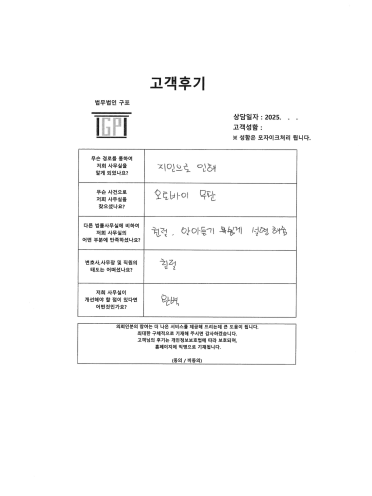 고객후기
법무법인 구포
GP
상담일자 : 2025. . .
고객성함 :
※ 성함은 모자이크처리 됩니다.
무슨 경로를 통하여
저희 사무실을
알게 되었나요?
지인으로 인해
무슨 사건으로
저희 사무실을
찾으셨나요?
오토바이 무단
다른 법률사무실에 비하여
저희 사무실의
어떤 부분에 만족하셨나요?
친절, 알아듣기 쉽게 설명해줌
변호사,사무장 및 직원의
태도는 어떠셨나요?
친절
저희 사무실이
개선해야 할 점이 있다면
어떤것인가요?
완벽
의뢰인분의 참여는 더 나은 서비스를 제공해 드리는데 큰 도움이 됩니다.
최대한 구체적으로 기재해 주시면 감사하겠습니다.
고객님의 후기는 개인정보보호법에 따라 보호되며,
홈페이지에 익명으로 기재됩니다.
(동의 / 비동의)